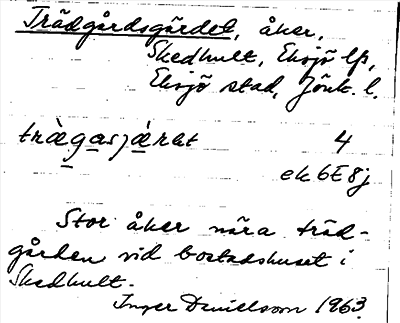 Trädgårdsgärdet, åker,
Skedhult, Eksjö lfs,
Eksjö stad, Jönk. l.
trä̀gasjä́rdet 4
ek 6E 8j
Stor åker nära träd-
gården vid bostadshuset i
Skedhult.
Inger Danielsson 1963.